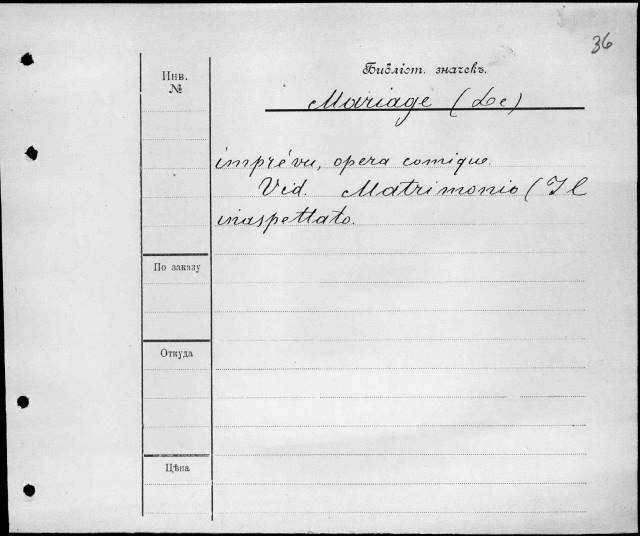 36
Инв.
№
Библіот. значекъ.
Mariage (Le)
imprévu, opera comique.
Vid. Matrimonio (Il
inaspettato.
По заказу
Откуда
Цѣна